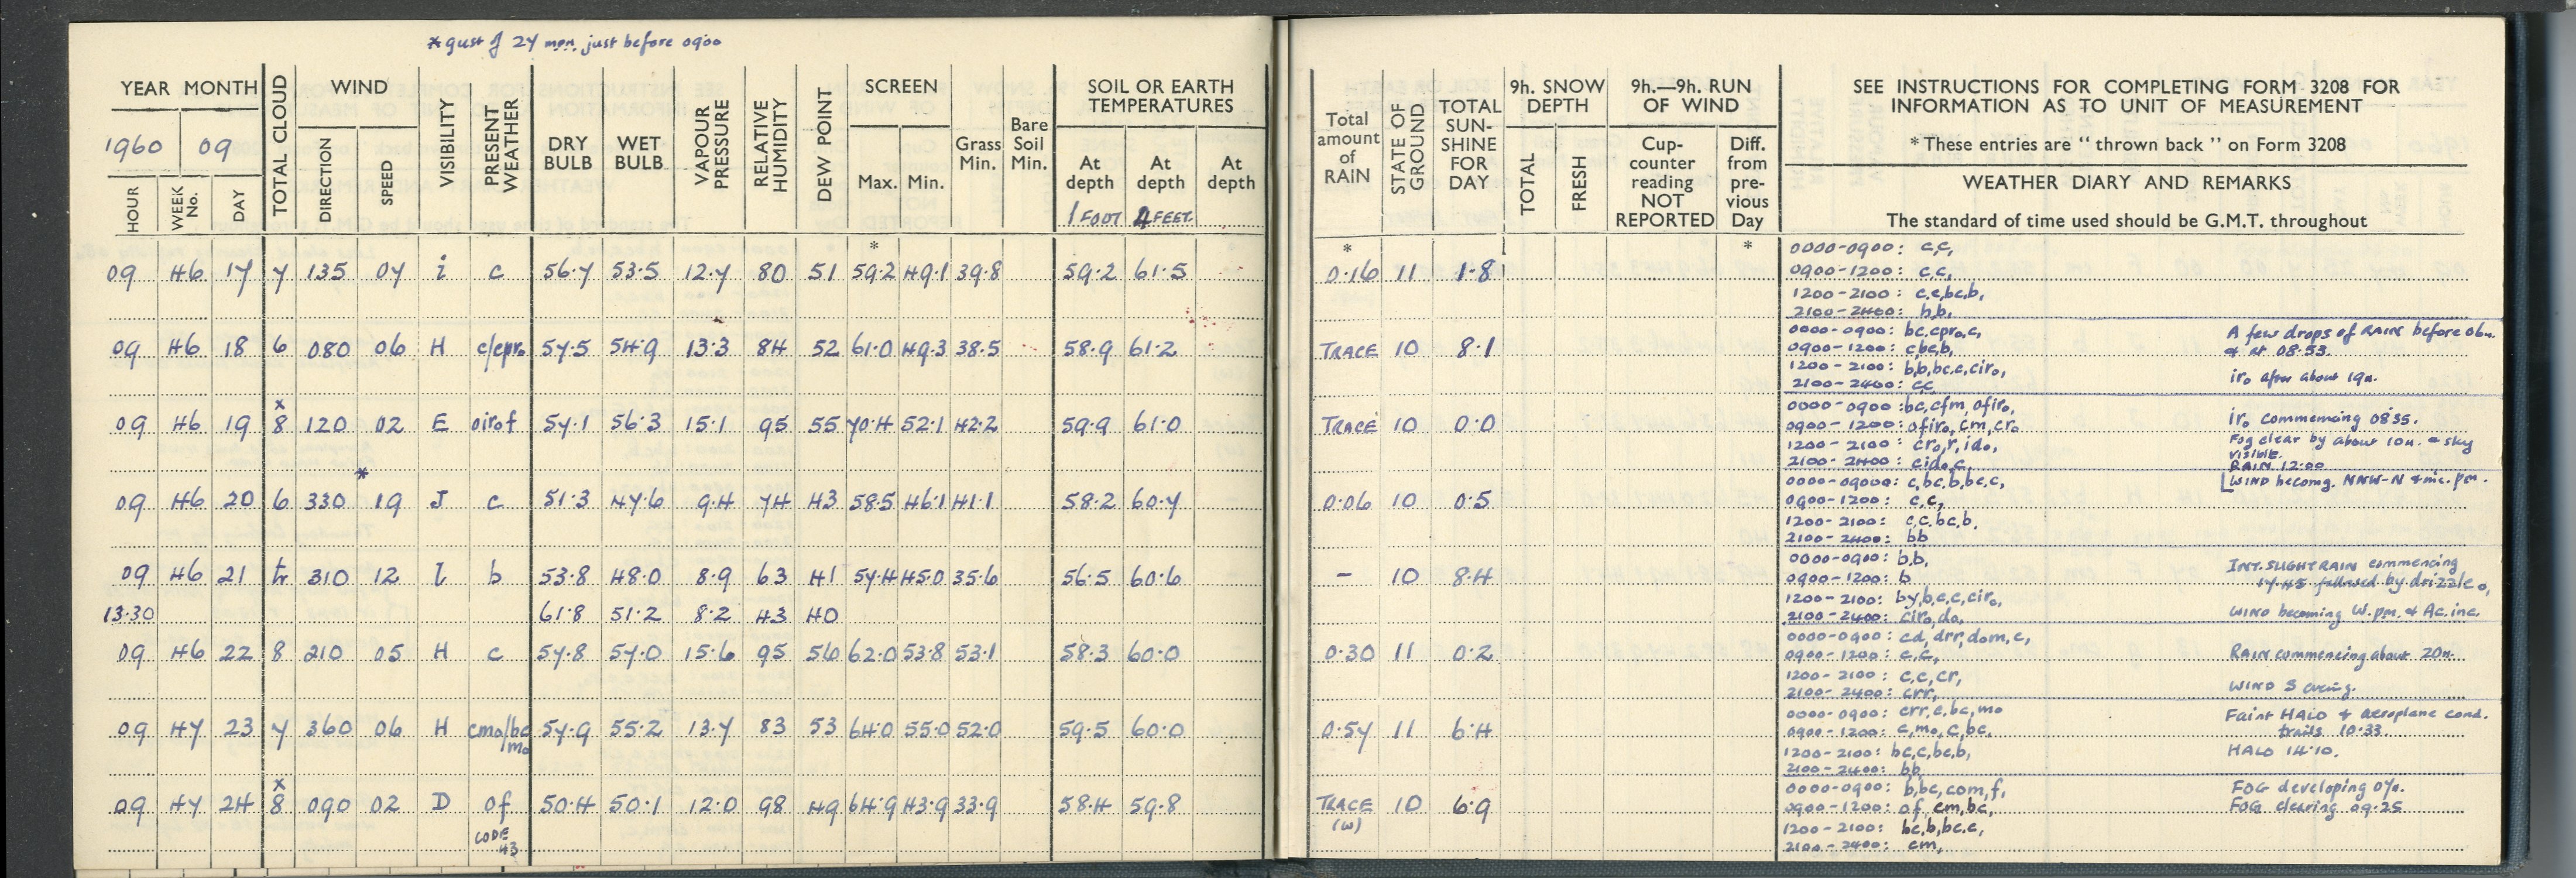 * gust of 27 mph. just before 0900
YEAR MONTH
1960 09
HOUR WEEK No. DAY TOTAL CLOUD WIND DIRECTION SPEED VISIBILITY PRESENT WEATHER DRY BULB WET BULB VAPOUR PRESSURE RELATIVE HUMIDITY DEW POINT SCREEN Max. Min. Grass Min. Bare Soil Min. SOIL OR EARTH TEMPERATURES At depth 1 FOOT At depth 4 FEET At depth
*
09 46 17 7 135 04 i c 56.7 53.5 12.7 80 51 59.2 49.1 39.8 59.2 61.5
09 46 18 6 080 06 H c/cpro 57.5 54.9 13.3 84 52 61.0 49.3 38.5 58.9 61.2
x
09 46 19 8 120 02 E oirof 57.1 56.3 15.1 95 55 70.4 52.1 42.2 59.9 61.0
*
09 46 20 6 330 19 J c 51.3 47.6 9.4 74 43 58.5 46.1 41.1 58.2 60.7
09 46 21 tr 310 12 l b 53.8 48.0 8.9 63 41 57.4 45.0 35.6 56.5 60.6
13.30 61.8 51.2 8.2 43 40
09 46 22 8 210 05 H c 57.8 57.0 15.6 95 56 62.0 53.8 53.1 58.3 60.0
09 47 23 7 360 06 H cmo/bc mo 57.9 55.2 13.7 83 53 64.0 55.0 52.0 59.5 60.0
x
09 47 24 8 090 02 D of 50.4 50.1 12.0 98 49 64.9 43.9 33.9 58.4 59.8
CODE 43
Total amount of RAIN STATE OF GROUND TOTAL SUN-SHINE FOR DAY 9h. SNOW DEPTH TOTAL FRESH 9h.—9h. RUN OF WIND Cup-counter reading NOT REPORTED Diff. from pre-vious Day
SEE INSTRUCTIONS FOR COMPLETING FORM 3208 FOR
INFORMATION AS TO UNIT OF MEASUREMENT
* These entries are "thrown back" on Form 3208
WEATHER DIARY AND REMARKS
The standard of time used should be G.M.T. throughout
* *
0.16 11 1.8
0000-0900: c,c,
0900-1200: c,c,
1200-2100: c,c,bc,b,
2100-2400: b,b,
TRACE 10 8.1
0000-0900: bc,cpro,c, A few drops of RAIN before 06h.
0900-1200: c,bc,b, & at 08.53.
1200-2100: b,b,bc,c,ciro,
2100-2400: cc iro after about 19h.
TRACE 10 0.0
0000-0900: bc,cfm,ofiro, iro commencing 0835.
0900-1200: ofiro,cm,cro Fog clear by about 10h. & sky visible.
1200-2100: cro,r,ido,
2100-2400: cido,c, RAIN 12.00
0.06 10 0.5
0000-0900: c,bc,b,bc,c, [WIND becomg. NNW-N & inc. pm.
0900-1200: c,c,
1200-2100: c,c,bc,b,
2100-2400: bb
- 10 8.4
0000-0900: b,b, INT. SLIGHT RAIN commencing
0900-1200: b 17.45 followed by drizzle o,
1200-2100: by,b,c,c,ciro,
2100-2400: ciro,do, WIND becoming W. pm. & Ac. inc.
0.30 11 0.2
0000-0900: cd,drr,dom,c,
0900-1200: c,c, RAIN commencing about 20h.
1200-2100: c,c,cr,
2100-2400: crr, WIND S evening.
0.57 11 6.4
0000-0900: crr,c,bc,mo Faint HALO & aeroplane cond.
0900-1200: c,mo,c,bc, trails 10.33.
1200-2100: bc,c,bc,b, HALO 14.10.
2100-2400: bb,
TRACE (w) 10 6.9
0000-0900: b,bc,com,f, FOG developing 07h.
0900-1200: of,cm,bc, FOG clearing 09.25
1200-2100: bc,b,bc,c,
2100-2400: cm,